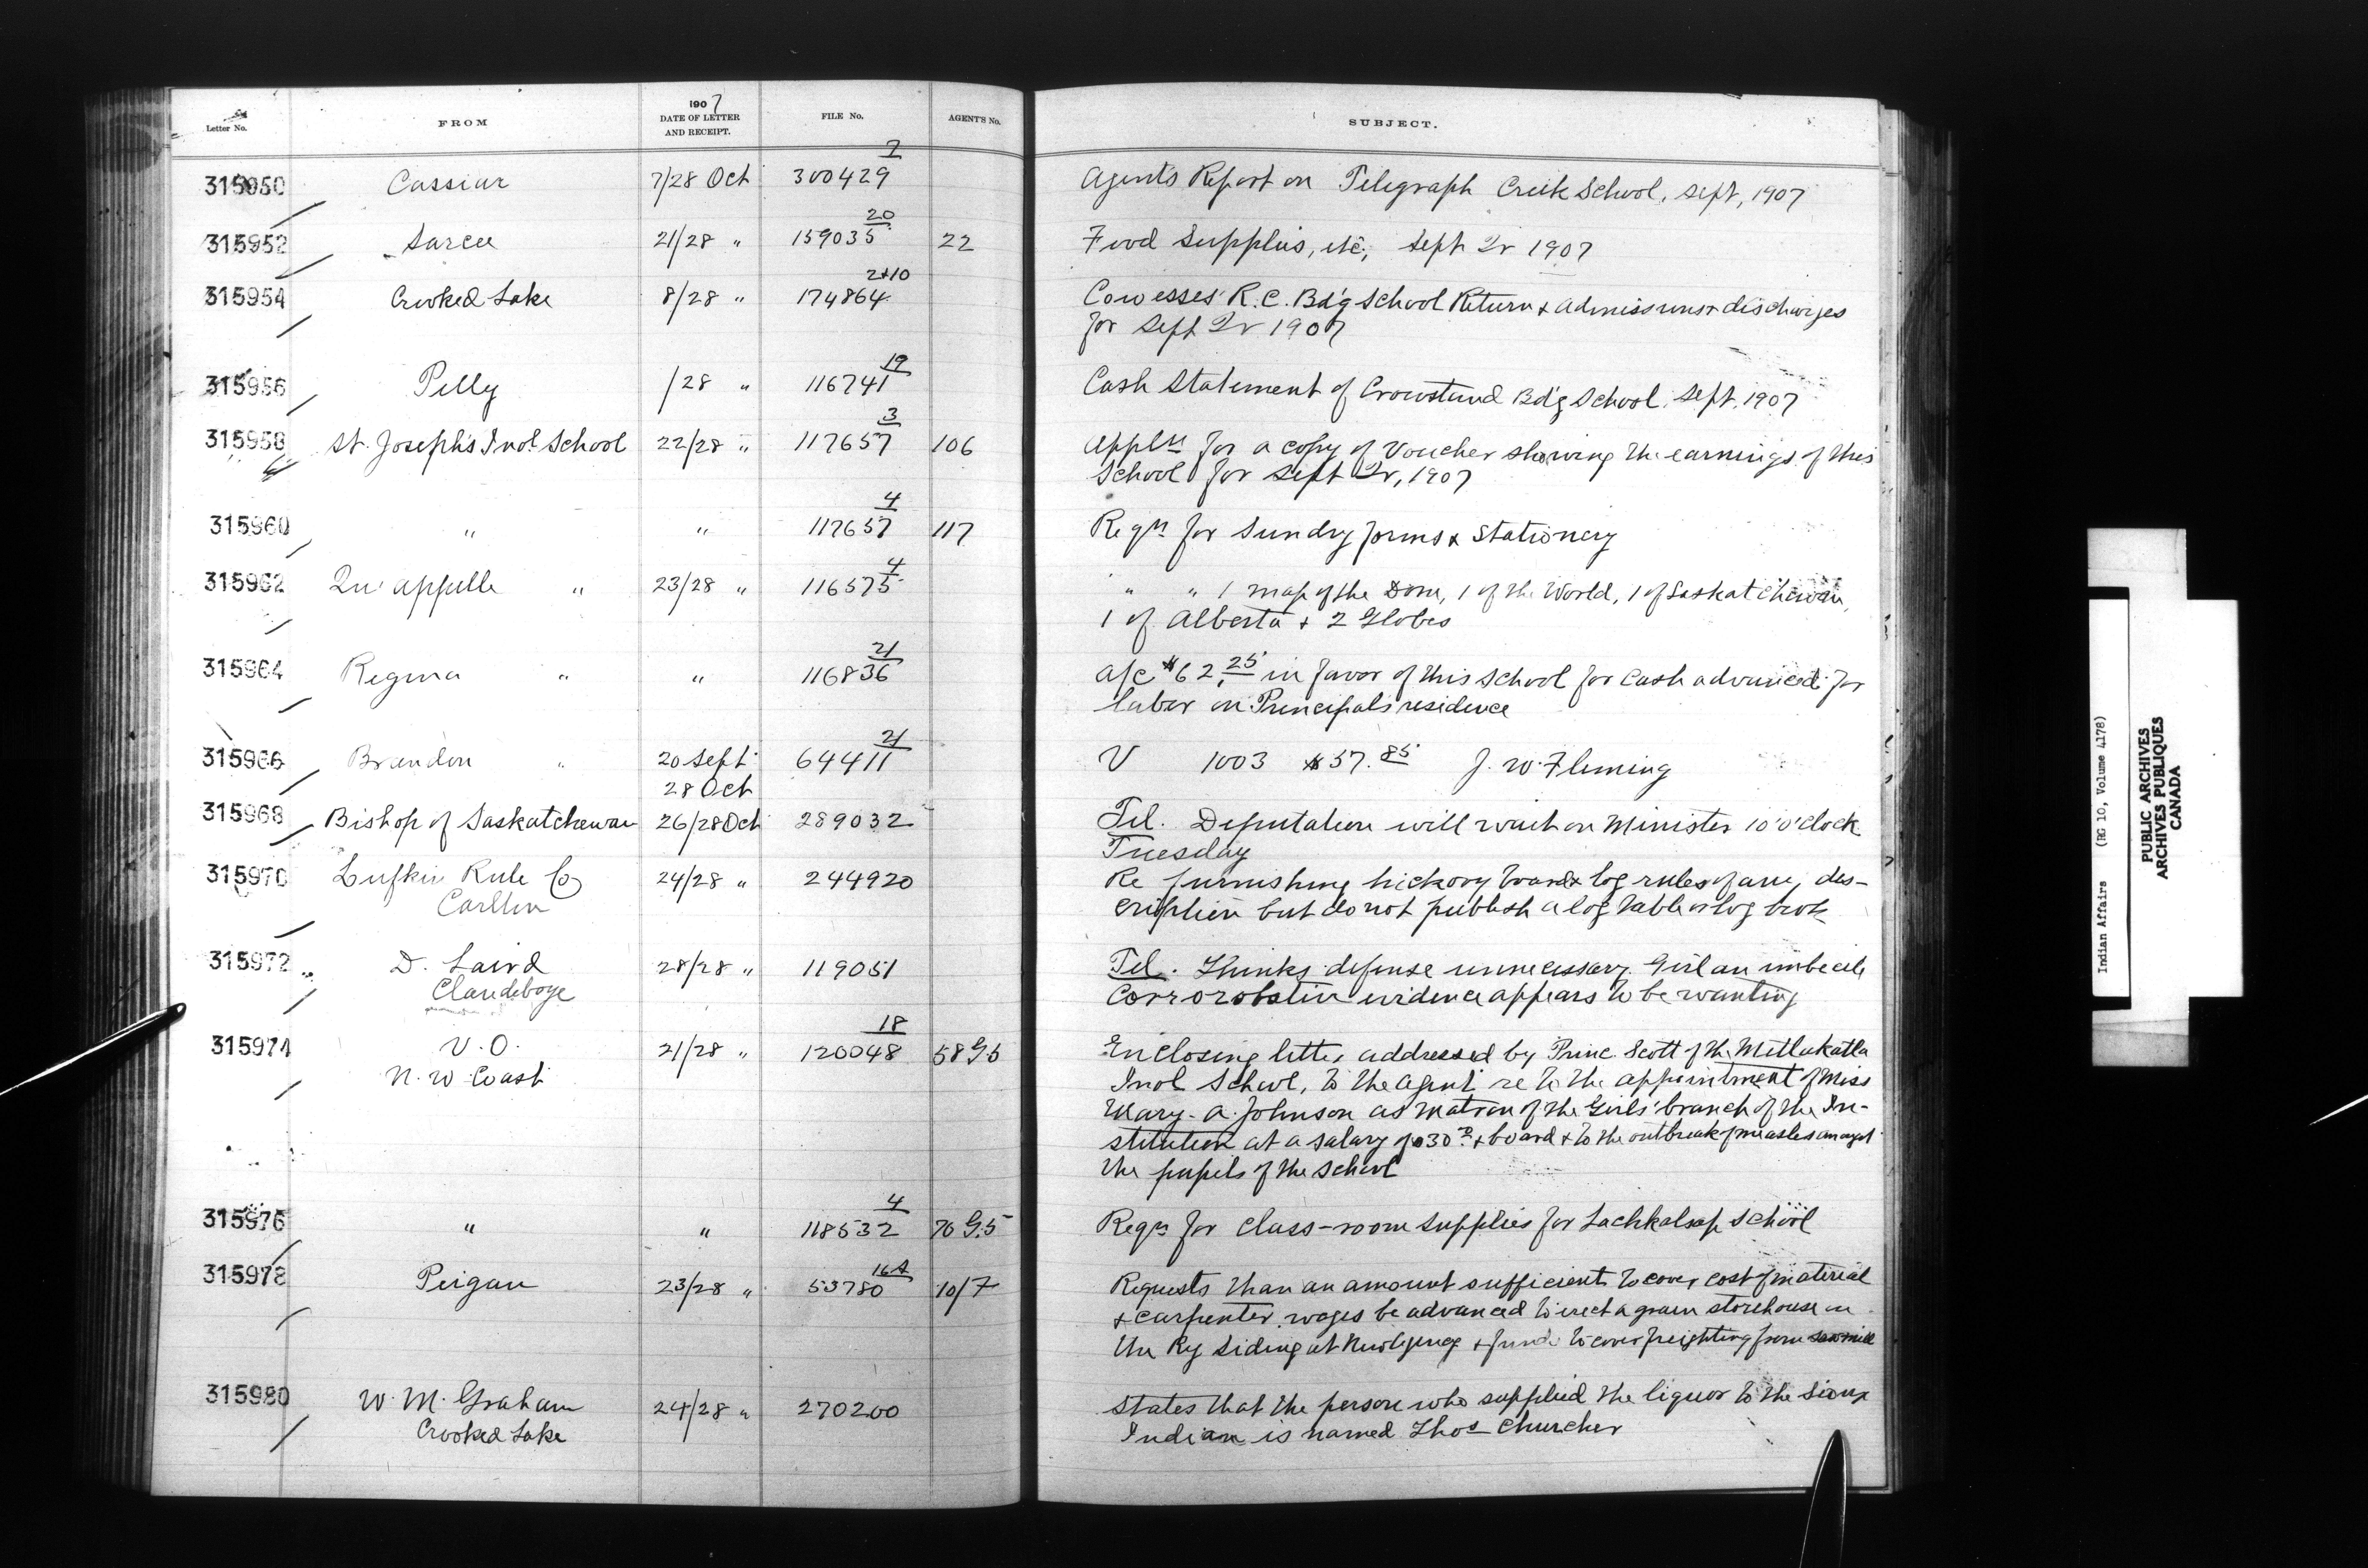 Letter No. FROM 1907 DATE OF LETTER AND RECEIPT. FILE No. AGENT'S No. SUBJECT.
315950 Cassiar 7/28 Oct 300429 7 Agents Report on Telegraph Creek School, Sept, 1907
315952 Sarcee 21/28 " 159035 20 22 Food Supplies, etc, Sept Qr 1907
315954 Crooked Lake 8/28 " 174864 2+10 Cowesses R.C. Bd'g School Return & admissions & discharges
for Sept Qr 1907
315956 Pelly /28 " 116741 19 Cash Statement of Crowstand Bd'g School, Sept. 1907
315958 St. Joseph's Indl School 22/28 " 117657 3 106 Appln for a copy of Voucher showing the earnings of this
School for Sept Qr, 1907
315960 " " 117657 4 117 Reqn for Sundry forms & Stationery
315962 Qu'appelle " 23/28 " 116575 4 " " 1 map of the Dom, 1 of the World, 1 of Saskatchewan,
1 of Alberta & 2 Globes
315964 Regina " " 116836 21 a/c $62.25 in favor of this School for Cash advanced for
labor on Principal's residence
315966 Brandon " 20 Sept 64411 21 V 1003 $57.85 J. W. Fleming
28 Oct
315968 Bishop of Saskatchewan 26/28 Oct 289032 Tel. Deputation will wait on Minister 10 o'clock
Tuesday
315970 Lufkin Rule Co 24/28 " 244920 Re furnishing hickory board & log rules of any des-
cription but do not publish a log table or log book
315972 D. Laird 28/28 " 119051 Tel. Thinks defense unnecessary. Girl an imbecile
Clandeboye Corroborative evidence appears to be wanting
315974 V.O. 21/28 " 120048 18 58 G.5 Enclosing letter addressed by Princ. Scott of the Metlakatla
N. W Coast Indl School, to the agent re to the appointment of Miss
Mary A. Johnson as Matron of the Girls' branch of the In-
stitution at a salary of $30 & board & to the outbreak of measles amongst
the pupils of the School
315976 " " 118532 4 70 G.5 Reqn for class-room supplies for Lachkalsap School
315978 Peigan 23/28 " 53780 16A 10/7 Requests than an amount sufficient to cover cost of material
& carpenter wages be advanced to erect a grain storehouse on
the Ry Siding at New Agency & funds to cover freighting from sawmill
315980 W. M. Graham 24/28 " 270200 States that the person who supplied the liquor to the Sioux
Crooked Lake Indian is named Thos Churcher
Indian Affairs (RG 10, Volume 4178)
PUBLIC ARCHIVES
ARCHIVES PUBLIQUES
CANADA